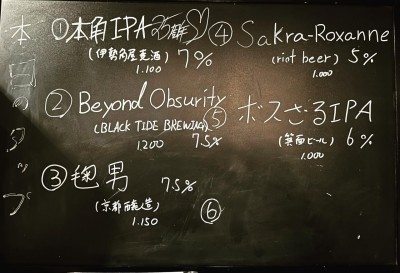 本日のタップ
①本角IPA
(伊勢角屋麦酒) 7%
1.100
② Beyond Obsurity
(BLACK TIDE BREWING) 7.5%
1200
③ 麹男 7.5%
(京都醸造)
1.150
④ Sakra-Roxanne
(riot beer) 5%
1.000
⑤ ボスざるIPA
(箕面ビール) 6%
1.000
⑥